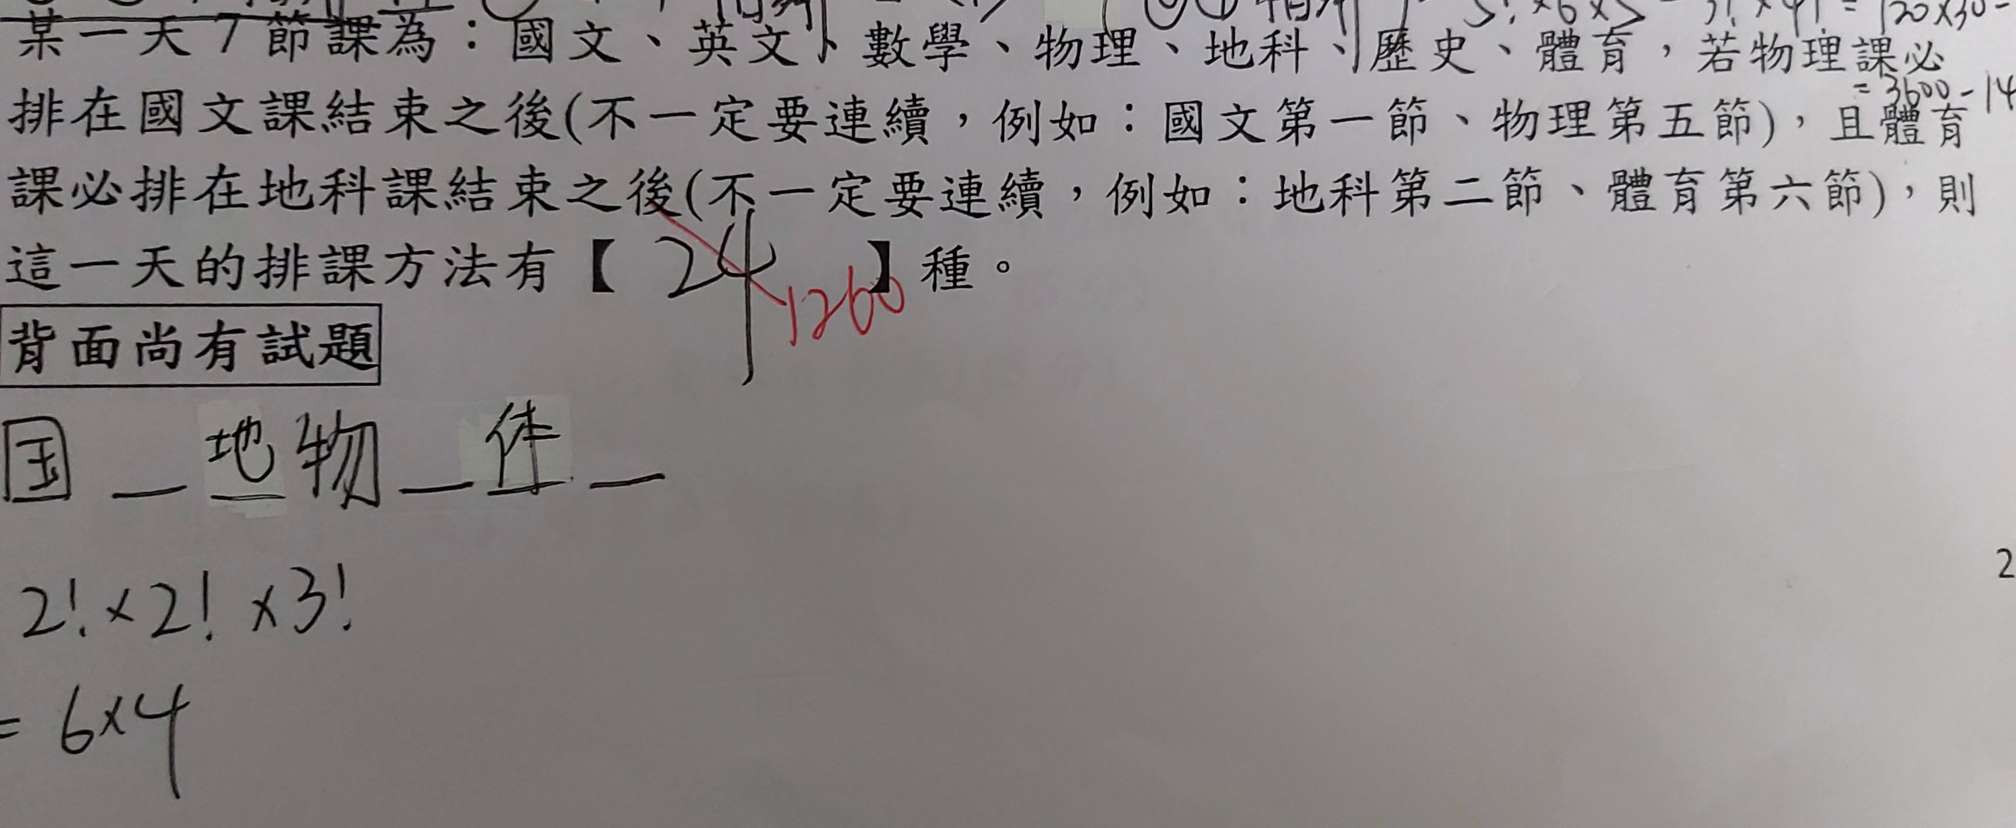 某一天7節課為：國文、英文、數學、物理、地科、歷史、體育，若物理課必
= 3600 - 14
排在國文課結束之後(不一定要連續，例如：國文第一節、物理第五節)，且體育
課必排在地科課結束之後(不一定要連續，例如：地科第二節、體育第六節)，則
這一天的排課方法有【 24 】種。
1260
背面尚有試題
国 _ 地 物 _ 体 _
2! × 2! × 3!
2
= 6×4